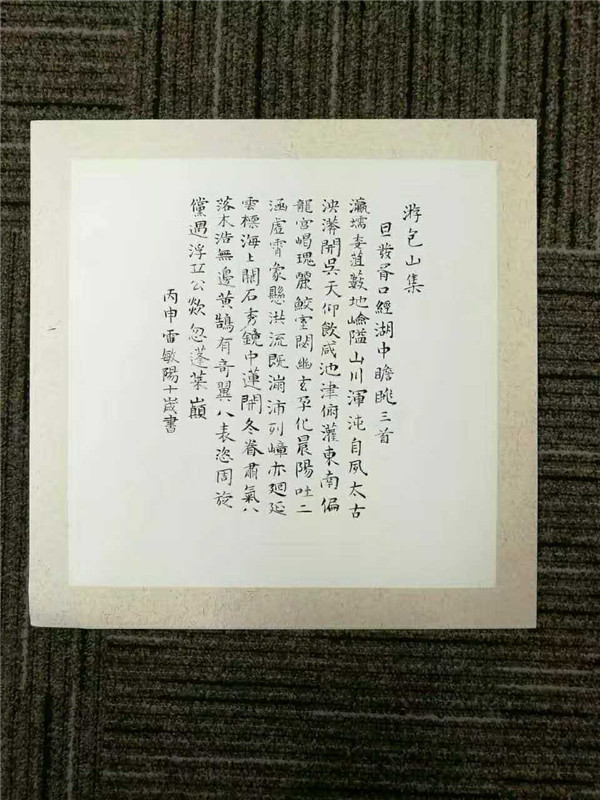 游包山集
旦發胥口經湖中瞻眺三首
瀛壖委菹藪地嶮隘山川渾沌自夙太古
泱漭開吳天仰飲咸池津俯灌東南偏
龍宮嵑瑰麗鮫室閟幽玄孕化晨陽吐二
涵虛霄象懸洪流既漰沛列嶂亦迴延
雲標海上關石秀鏡中蓮開冬眷肅氣八
落木浩無邊黃鵠有奇翼八表恣周旋
儻遇浮丘公欻忽蓬萊巔
丙申雷敏陽十歲書